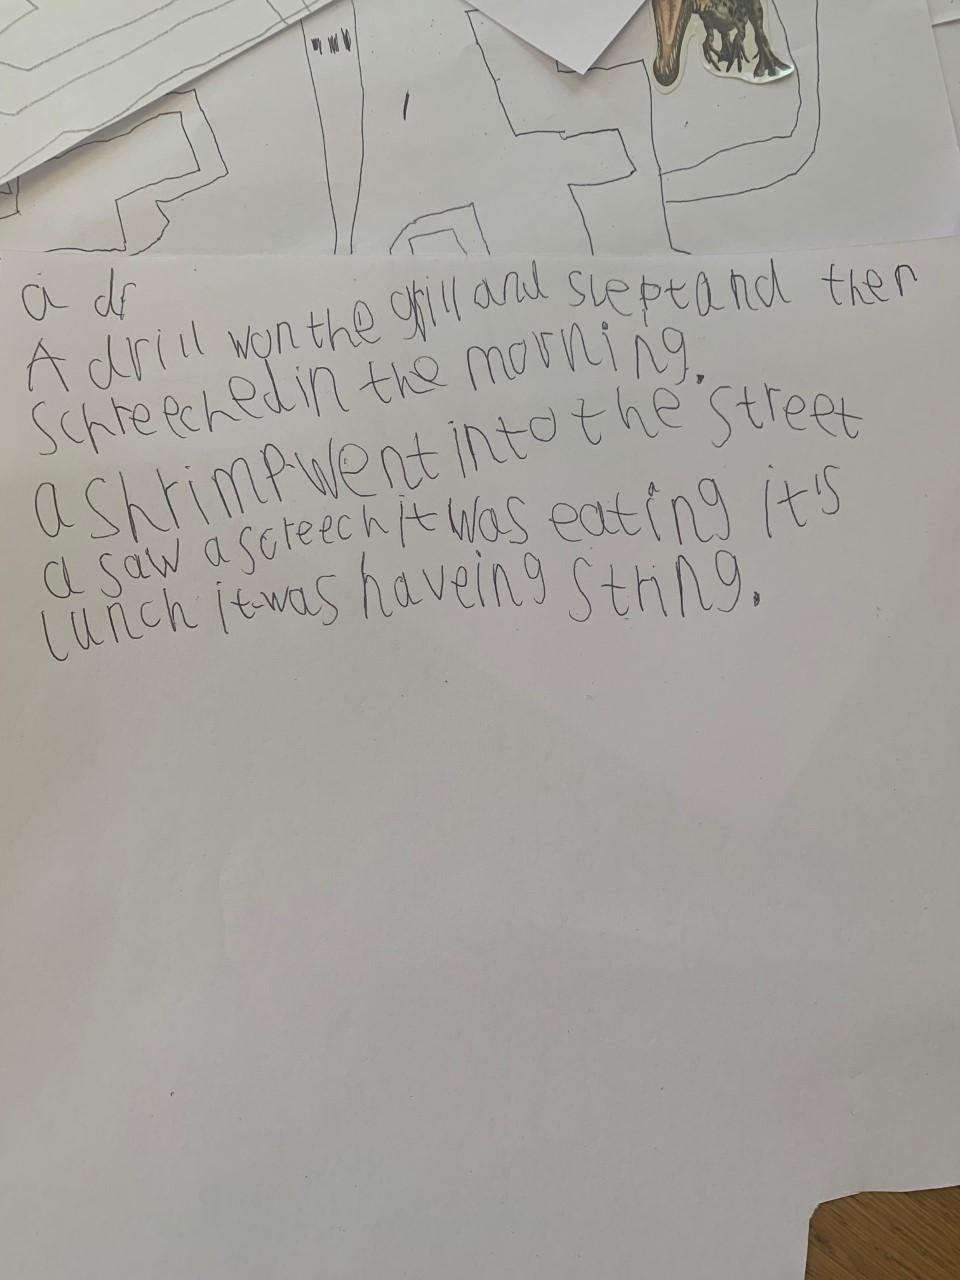 a dr
A drill won the grill and slept and then
schreeched in the morning.
a shrimp went into the street
a saw a screech it was eating it's
lunch it was haveing string.